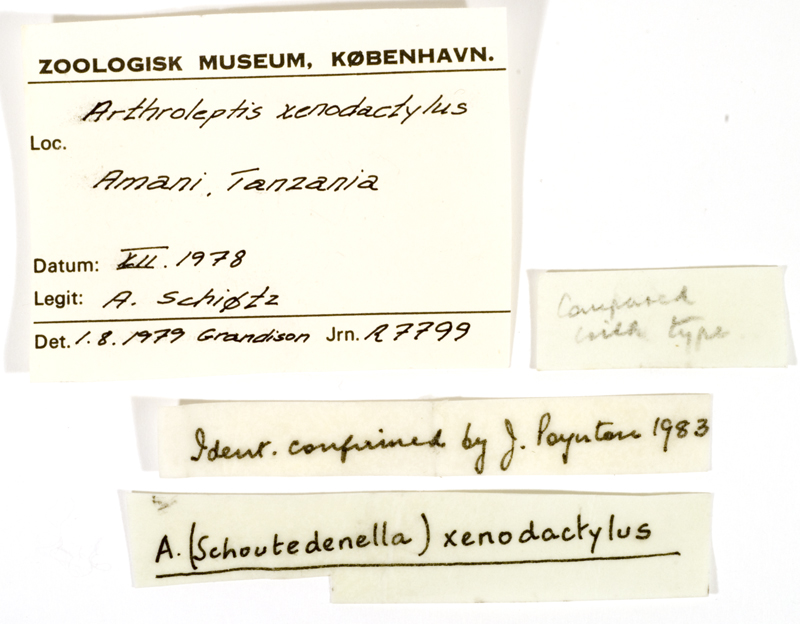 ZOOLOGISK MUSEUM, KØBENHAVN.
Arthroleptis xenodactylus
Loc.
Amani, Tanzania
Datum: XII. 1978
Legit: A. Schiøtz
Det. 1.8.1979 Grandison Jrn. R7799
Compared
with type
Ident. confirmed by J. Poynton 1983
A. (Schoutedenella) xenodactylus